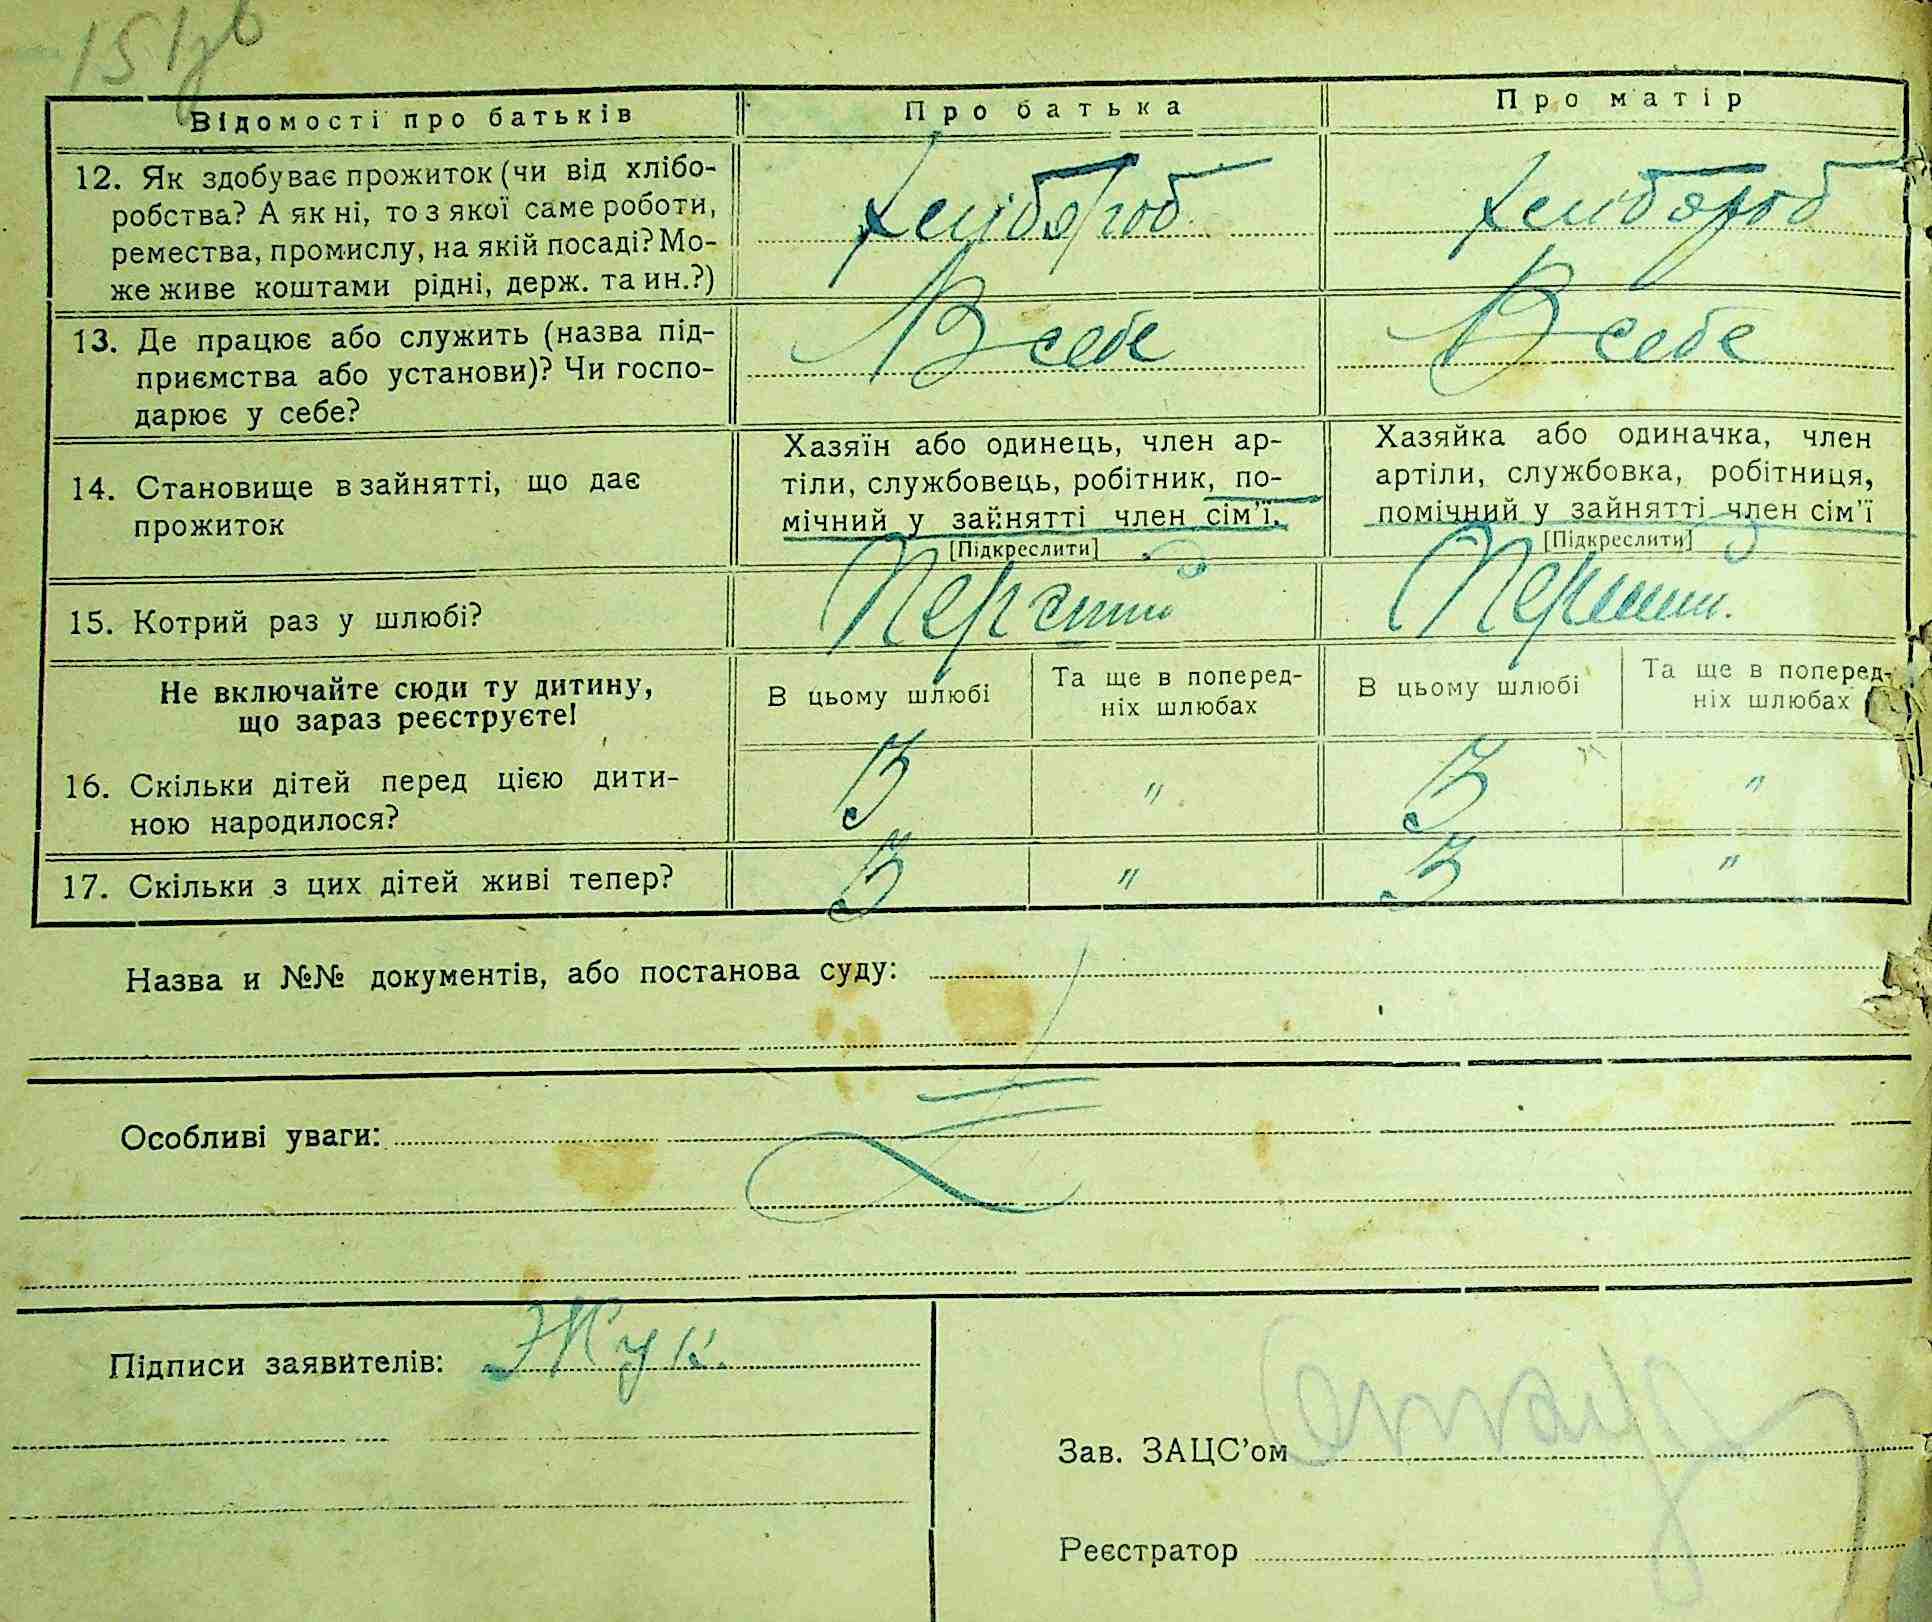 Відомості про батьків Про батька Про матір
12. Як здобуває прожиток (чи від хлібо-
робства? А як ні, то з якої саме роботи,
ремества, промислу, на якій посаді? Мо-
же живе коштами рідні, держ. та ин.?)
Хлібороб Хлібороб
13. Де працює або служить (назва під-
приємства або установи)? Чи госпо-
дарює у себе?
В себе В себе
14. Становище в зайнятті, що дає
прожиток
Хазяїн або одинець, член ар-
тіли, службовець, робітник, по-
мічний у зайнятті член сім'ї.
[Підкреслити]
Хазяйка або одиначка, член
артіли, службовка, робітниця,
помічний у зайнятті член сім'ї
[Підкреслити]
15. Котрий раз у шлюбі?
Перший Перший.
Не включайте сюди ту дитину,
що зараз реєструєте!
В цьому шлюбі
Та ще в поперед-
ніх шлюбах
В цьому шлюбі
Та ще в поперед-
ніх шлюбах
16. Скільки дітей перед цією дити-
ною народилося?
3 " 3 "
17. Скільки з цих дітей живі тепер?
3 " 3 "
Назва и №№ документів, або постанова суду:
Особливі уваги:
Підписи заявителів: Жук.
Зав. ЗАЦС'ом
Реєстратор